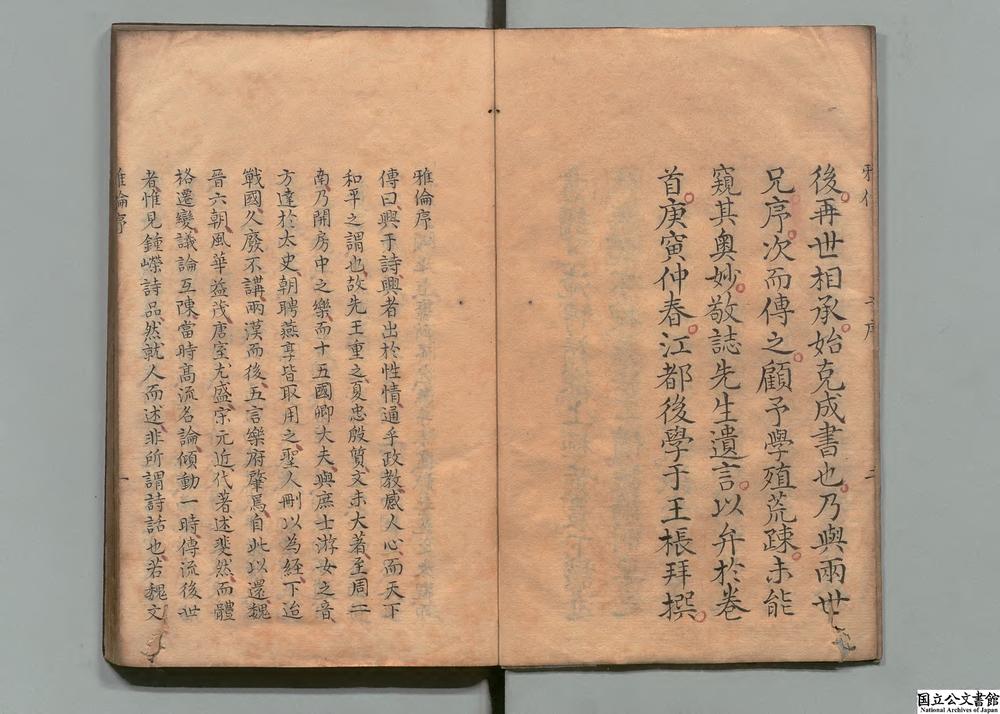 後再世相承始克成書也乃與兩世
兄序次而傳之顧予學殖荒踈未能
窺其奧妙敬誌先生遺言以弁於卷
首庚寅仲春江都後學于王棖拜撰
雅倫序
傳曰興于詩興者出於性情通乎政教感人心而天下
和平之謂也故先王重之夏忠殷質文未大著至周二
南乃開房中之樂而十五國卿大夫與庶士游女之音
方達於太史朝聘燕享皆取用之聖人刪以為經下迨
戰國久廢不講兩漢而後五言樂府肇焉自此以還魏
晉六朝風華益茂唐室尤盛宋元近代著述斐然而體
格遷變議論互陳當時高流名論傾動一時傳流後世
者惟見鍾嶸詩品然就人而述非所謂詩話也若魏文
雅倫序
一
国立公文書館
National Archives of Japan